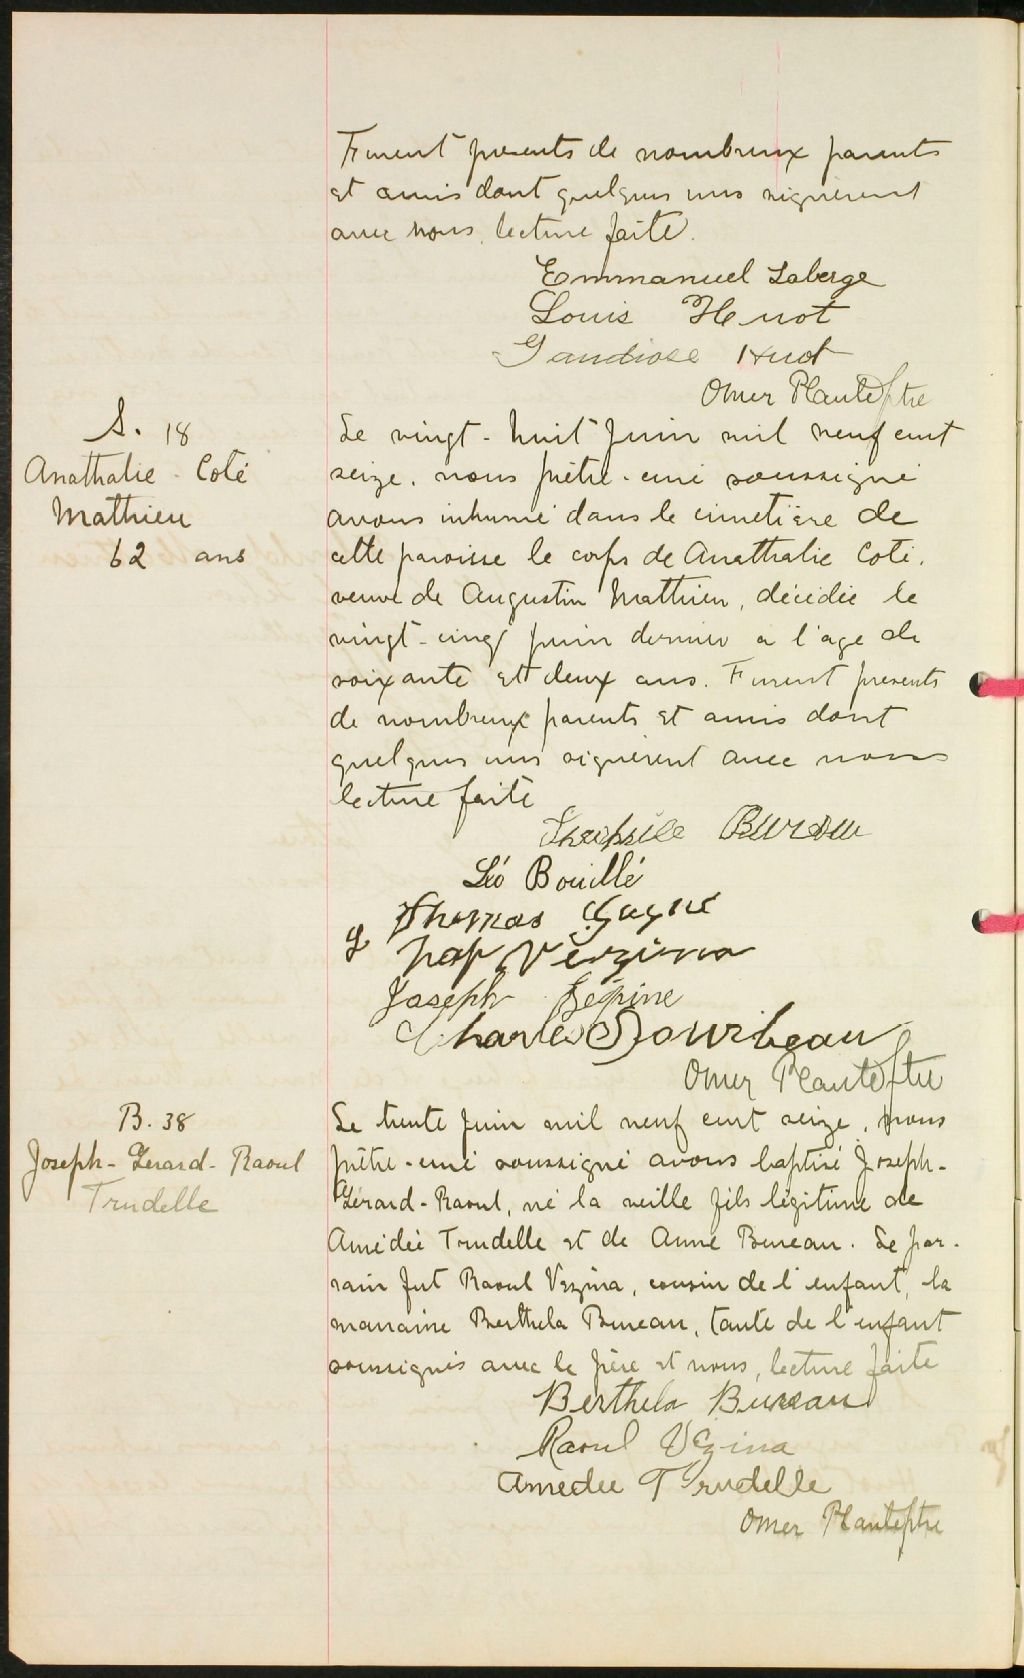 Furent présents de nombreux parents
et amis dont quelques uns signèrent
avec nous, lecture faite.
Emmanuel Laberge
Louis Huot
Gaudiose Huot
Omer Plante ptre
S. 18
Anathalie - Coté
Mathieu
62 ans
Le vingt-huit juin mil neuf cent
seize, nous prêtre-curé soussigné
avons inhumé dans le cimetière de
cette paroisse le corps de Anathalie Coté,
veuve de Augustin Mathieu, décédée le
vingt-cinq juin dernier a l'age de
soixante et deux ans. Furent présents
de nombreux parents et amis dont
quelques uns signèrent avec nous
lecture faite
Théophile Bureau
Léo Bouillé
Thomas Gagné
Nap Vézina
Joseph Lépine
Charles Bourbeau
Omer Plante ptre
B. 38
Joseph-Gérard-Raoul
Trudelle
Le trente juin mil neuf cent seize, nous
prêtre-curé soussigné avons baptisé Joseph-
Gérard-Raoul, né la veille fils légitime de
Amédée Trudelle et de Anna Bureau. Le par-
rain fut Raoul Vézina, cousin de l'enfant, la
marraine Berthela Bureau, tante de l'enfant
soussignés avec le père et nous, lecture faite
Berthela Bureau
Raoul Vézina
Amedée Trudelle
Omer Plante ptre